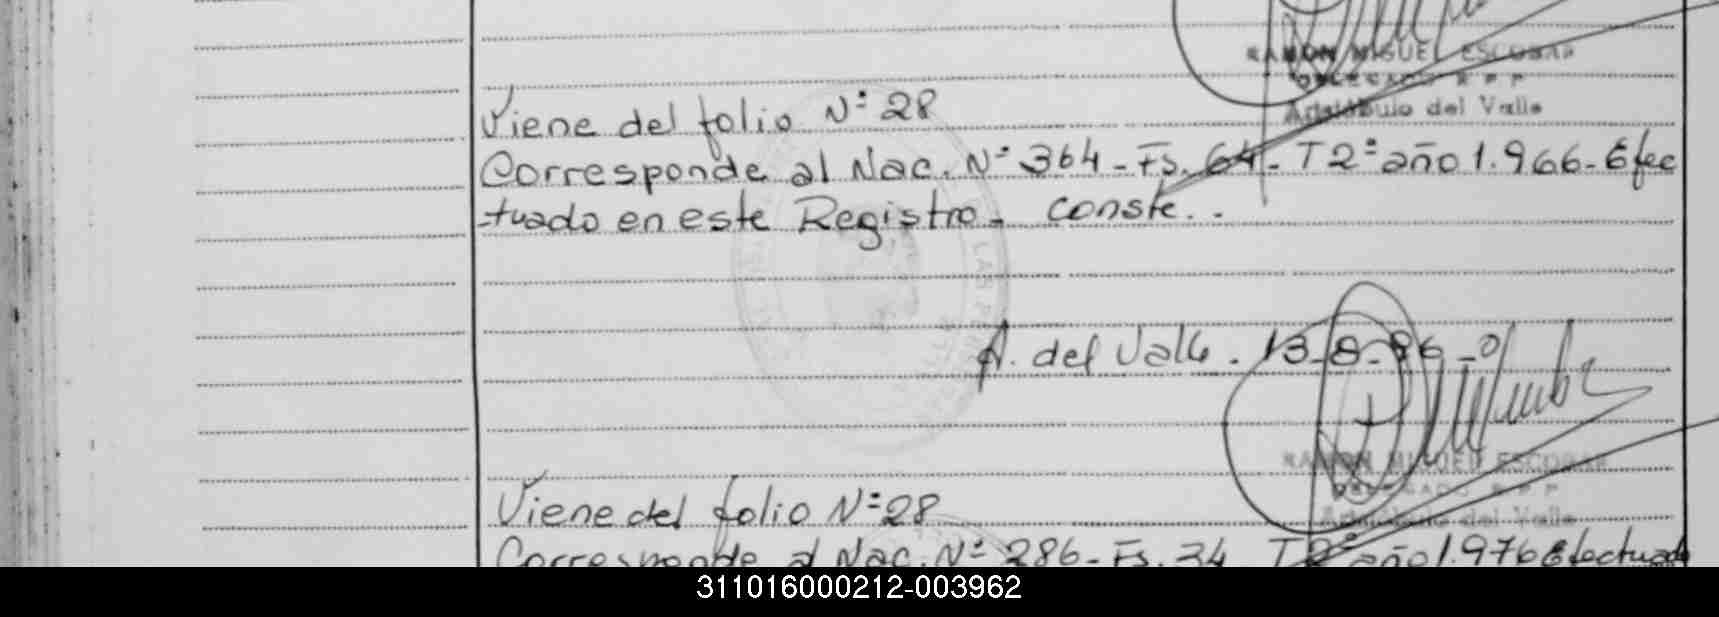 RAMON MIGUEL ESCOBAR
DELEGADO R P P
Aristóbulo del Valle
Viene del folio Nº 28
Corresponde al Nac. Nº 364 - Fs. 64 - T 2º año 1.966 - Efec
tuado en este Registro - conste..
LAS PER
A. del Valle. 13-8-86-
RAMON MIGUEL ESCOBAR
DELEGADO R P P
Aristóbulo del Valle
Viene del folio Nº 28
Corresponde al Nac. Nº 286 - Fs. 34 T 2º año 1.976 Efectuado
311016000212-003962